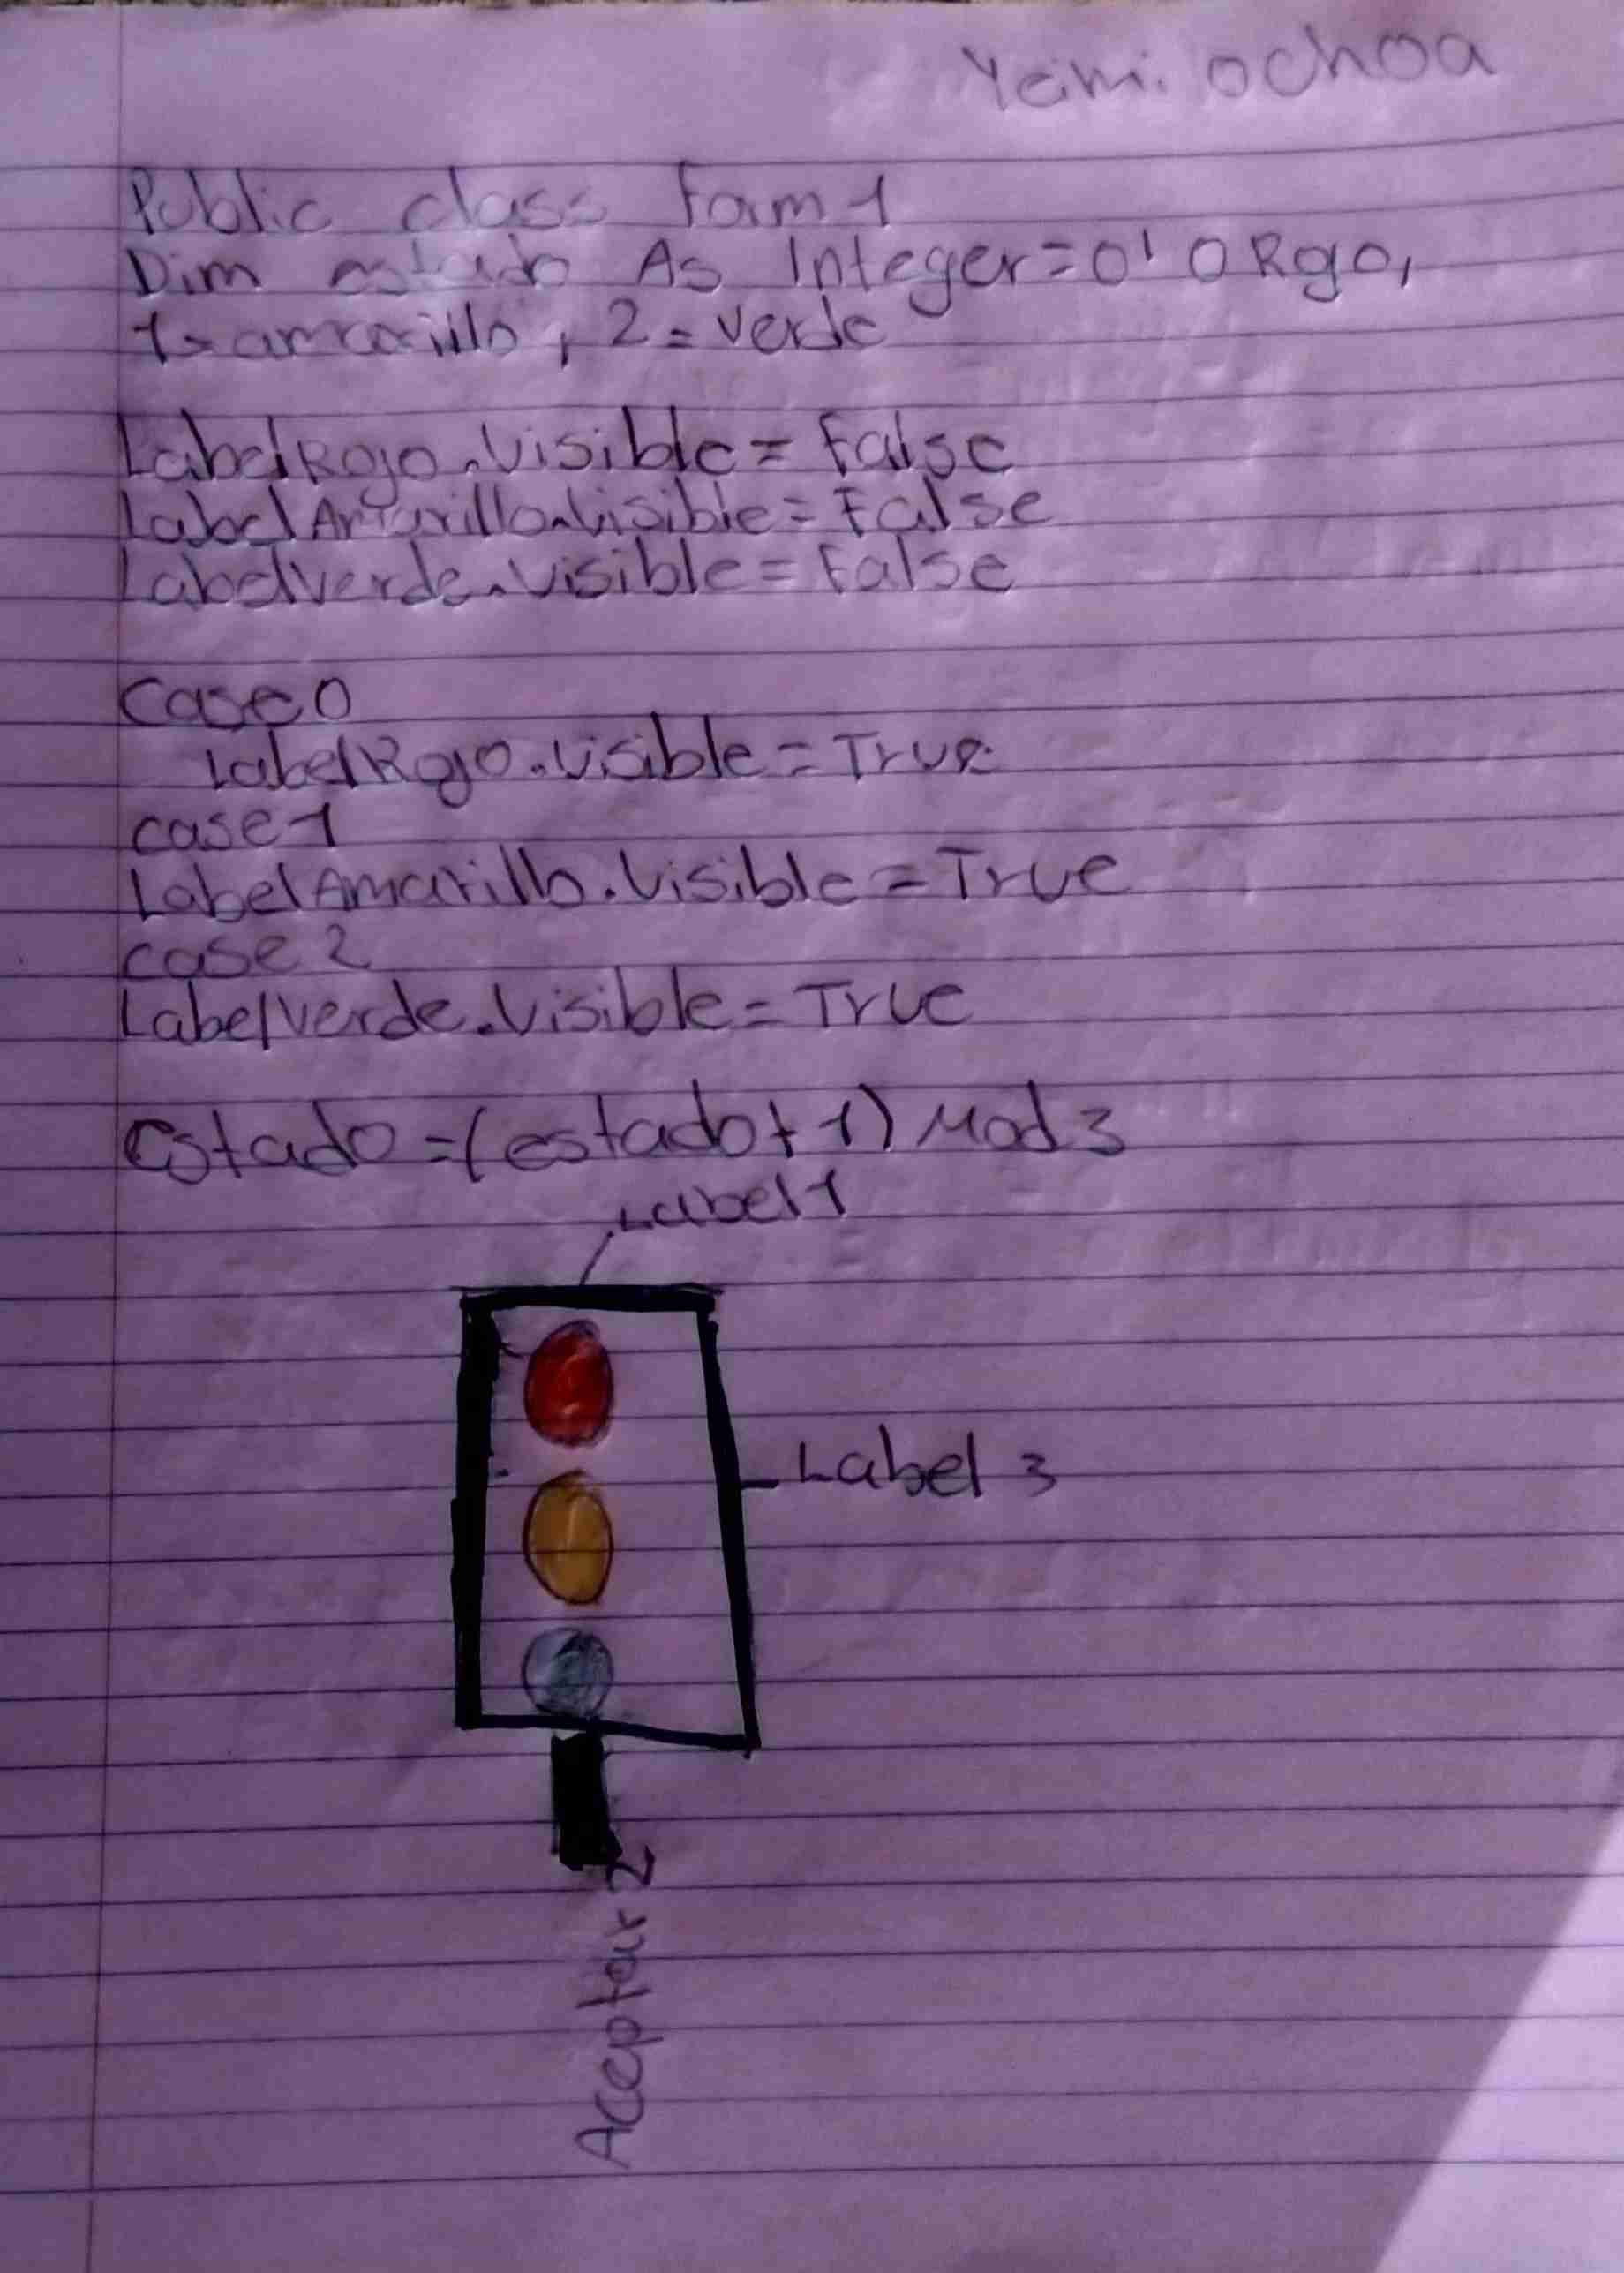 Yeimi ochoa
Public class Form 1
Dim estado As Integer=0' 0 Rojo,
1=amarillo, 2=verde
LabelRojo.Visible=False
LabelAmarillo.Visible=False
Labelverde.Visible=False
Case 0
LabelRojo.Visible=True
case 1
LabelAmarillo.Visible=True
case 2
Labelverde.Visible=True
Estado=(estado+1) Mod 3
Label 1
Label 3
Aceptar 2